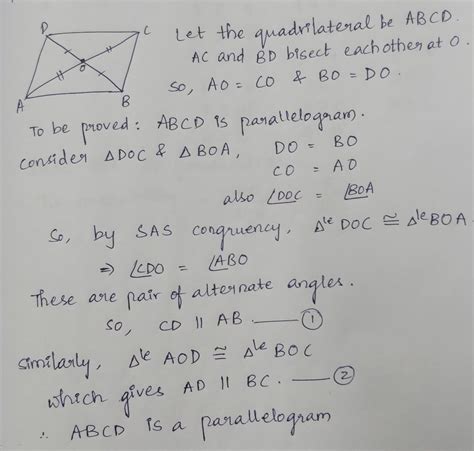 D C
O
A B
Let the quadrilateral be ABCD.
AC and BD bisect each other at O.
So, AO = CO & BO = DO.
To be proved: ABCD is parallelogram.
consider △DOC & △BOA, DO = BO
CO = AO
also ∠DOC = ∠BOA
So, by SAS congruency, Δle DOC ≅ Δle BOA.
⇒ ∠CDO = ∠ABO
These are pair of alternate angles.
So, CD || AB. — ①
similarly, Δle AOD ≅ Δle BOC
which gives AD || BC. — ②
∴ ABCD is a parallelogram